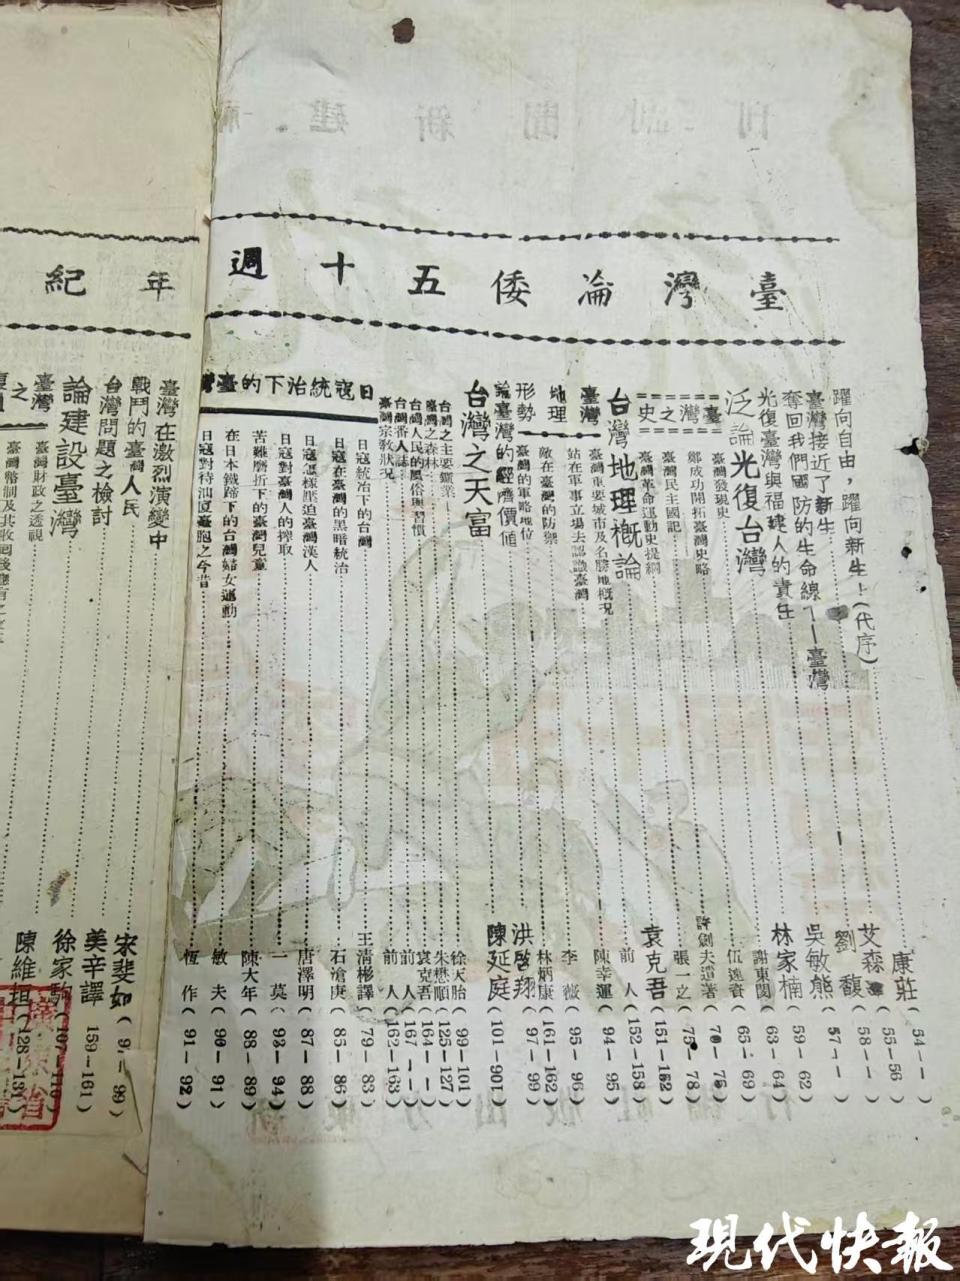 臺灣淪倭五十週年紀
躍向自由，躍向新生！(代序)……康莊(54——)
臺灣接近了新生……艾森(55—56)
奪回我們國防的生命線——臺灣……劉馥(58——)
光復臺灣與福建人的責任……吳敏熊(57——)
泛論光復台灣……林家楠(59—62)
臺灣之史
臺灣發現史……謝東閔(63—64)
鄭成功開拓臺灣史略……伍遠資(65—69)
臺灣民主國記……許劍夫遺著(70—75)
臺灣革命運動史提綱……張一之(75—78)
台灣地理概論……袁克吾(151—152)
臺灣重要城市及名勝地概況……前人(152—158)
臺灣地理形勢
站在軍事立場去認識臺灣……陳幸運(94—95)
敵在臺灣的防禦……李薇(95—96)
臺灣的軍略地位……林炳康(161—162)
論臺灣的經濟價值……洪啓翔(97—99)
台灣之天富……陳延庭(101—901)
台灣之主要礦業……徐天胎(99—101)
臺灣之森林……朱懋順(125—127)
台灣人民的風俗與習慣……袁克吾(164——)
台灣番人誌……前人(167——)
臺灣宗敎狀況……前人(162—163)
日寇統治下的臺灣
日寇統治下的台灣……王清彬譯(79—83)
日寇在臺灣的黑暗統治……石滄庚(85—86)
日寇怎樣壓迫臺灣漢人……唐澤明(87—88)
日寇對臺灣人的搾取……一莫(93—94)
苦難磨折下的臺灣兒童……陳大年(88—89)
在日本鐵蹄下的台灣婦女運動……敏夫(90—91)
日寇對待汕厦臺胞之今昔……恆作(91—92)
臺灣在激烈演變中
戰鬥的臺灣人民……宋斐如
台灣問題之檢討……美辛譯 159—161)
論建設臺灣……徐家駒
臺灣之
臺灣財政之透視……陳維垣(128—13
臺灣幣制及其
現代快報